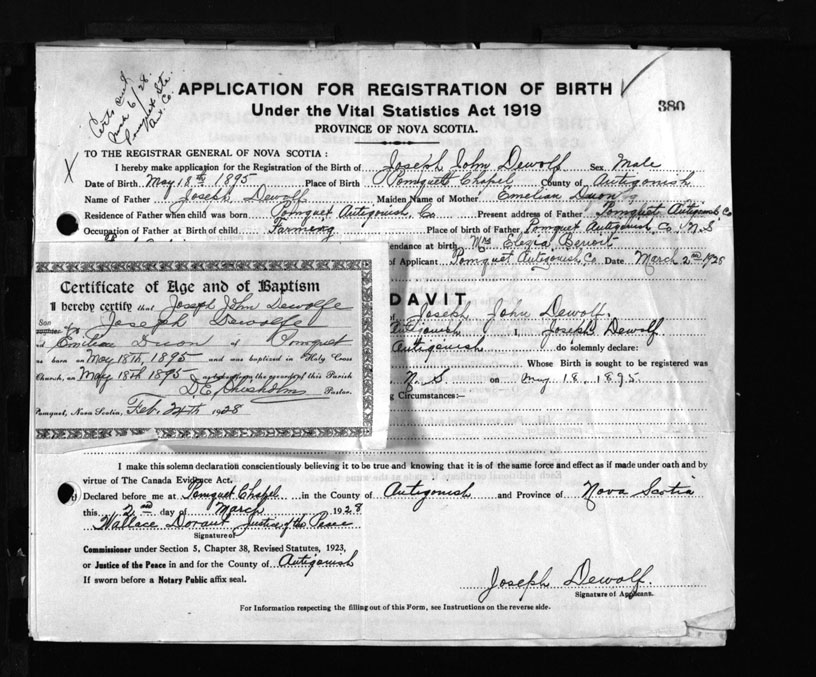 Certs sent
Mch 6/28.
Pomquet Sta.
Ant. Co.
APPLICATION FOR REGISTRATION OF BIRTH
Under the Vital Statistics Act 1919
380
PROVINCE OF NOVA SCOTIA.
X TO THE REGISTRAR GENERAL OF NOVA SCOTIA:
I hereby make application for the Registration of the Birth of Joseph John Dewolf Sex Male
Date of Birth May 18th 1895 Place of Birth Pomquet Chapel County of Antigonish
Name of Father Joseph Dewolf Maiden Name of Mother Emelian Duon
Residence of Father when child was born Pomquet Antigonish Co Present address of Father Pomquet Antigonish Co
Occupation of Father at Birth of child Farming Place of birth of Father Pomquet Antigonish Co N.S
endance at birth Mrs Benoit
of Applicant Pomquet Antigonish Co Date March 2nd 1928
Certificate of Age and of Baptism
I hereby certify that Joseph John Dewolfe
Son
Joseph Dewolfe
Emilian Duon of Pomquet
as born on May 18th, 1895 and was baptized in Holy Cross
Church, on May 18th 1895 according to the records of this Parish
D. E. Chisholm Pastor.
Pomquet, Nova Scotia, Feb. 24th 1928
DAVIT
Joseph John Dewolf.
Antigonish I, Joseph Dewolf
Antigonish do solemnly declare:
Whose Birth is sought to be registered was
N. S on May 18, 1895
g Circumstances:—
I make this solemn declaration conscientiously believing it to be true and knowing that it is of the same force and effect as if made under oath and by
virtue of The Canada Evidence Act.
Declared before me at Pomquet Chapel in the County of Antigonish and Province of Nova Scotia
this 2nd day of March 1928
Wallace Dorant Justice of the Peace
Signature of
Commissioner under Section 5, Chapter 38, Revised Statutes, 1923,
or Justice of the Peace in and for the County of Antigonish
If sworn before a Notary Public affix seal.
Joseph Dewolf.
Signature of Applicant.
For Information respecting the filling out of this Form, see Instructions on the reverse side.